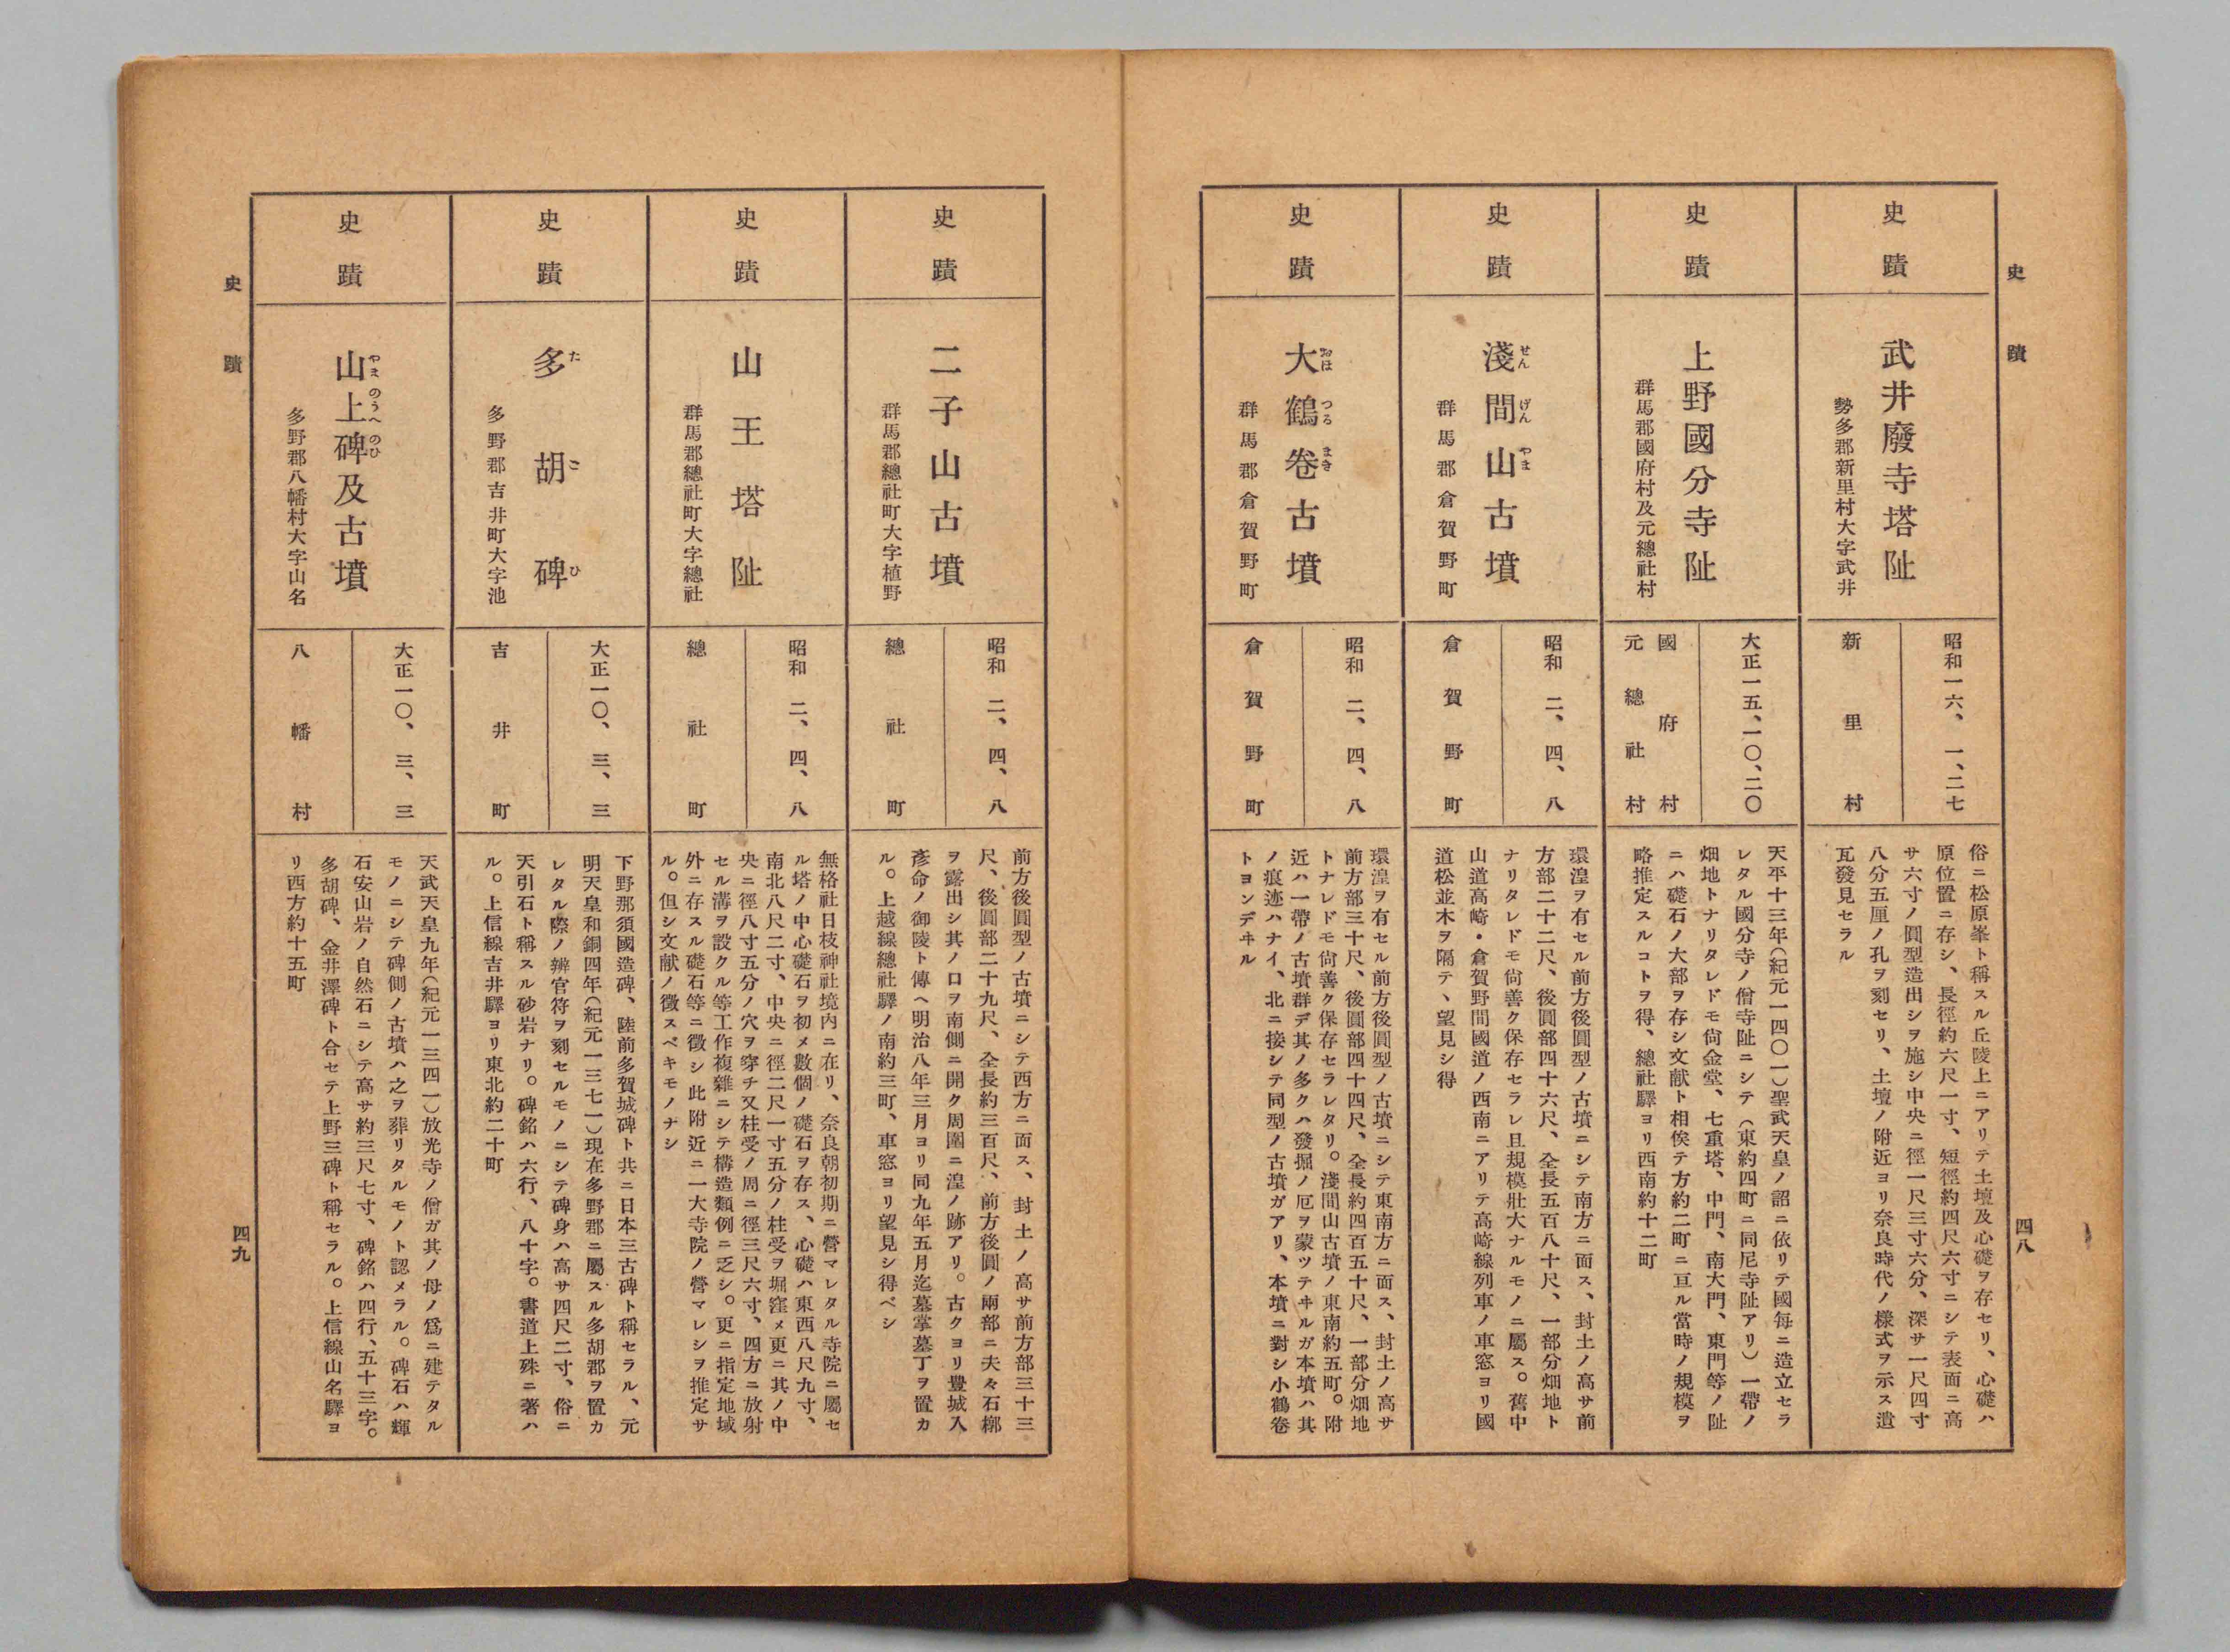 史蹟
四八
史蹟
武井廢寺塔阯
勢多郡新里村大字武井
昭和一六、一、二七
新里村
俗ニ松原峯ト稱スル丘陵上ニアリテ土壇及心礎ヲ存セリ、心礎ハ
原位置ニ存シ、長徑約六尺一寸、短徑約四尺六寸ニシテ表面ニ高
サ六寸ノ圓型造出シヲ施シ中央ニ徑一尺三寸六分、深サ一尺四寸
八分五厘ノ孔ヲ刻セリ、土壇ノ附近ヨリ奈良時代ノ樣式ヲ示ス遺
瓦發見セラル
史蹟
上野國分寺阯
群馬郡國府村及元總社村
大正一五、一〇、二〇
國府村
元總社村
天平十三年(紀元一四〇一)聖武天皇ノ詔ニ依リテ國每ニ造立セラ
レタル國分寺ノ僧寺阯ニシテ(東約四町ニ同尼寺阯アリ)一帶ノ
畑地トナリタレドモ尙金堂、七重塔、中門、南大門、東門等ノ阯
ニハ礎石ノ大部ヲ存シ文献ト相俟テ方約二町ニ亘ル當時ノ規模ヲ
略推定スルコトヲ得、總社驛ヨリ西南約十二町
史蹟
淺間山古墳
せんげんやま
群馬郡倉賀野町
昭和二、四、八
倉賀野町
環湟ヲ有セル前方後圓型ノ古墳ニシテ南方ニ面ス、封土ノ高サ前
方部二十二尺、後圓部四十六尺、全長五百八十尺、一部分畑地ト
ナリタレドモ尙善ク保存セラレ且規模壯大ナルモノニ屬ス。舊中
山道高崎・倉賀野間國道ノ西南ニアリテ高崎線列車ノ車窓ヨリ國
道松並木ヲ隔テヽ望見シ得
史蹟
大鶴卷古墳
おほつるまき
群馬郡倉賀野町
昭和二、四、八
倉賀野町
環湟ヲ有セル前方後圓型ノ古墳ニシテ東南方ニ面ス、封土ノ高サ
前方部三十尺、後圓部四十四尺、全長約四百五十尺、一部分畑地
トナレドモ尙善ク保存セラレタリ。淺間山古墳ノ東南約五町。附
近ハ一帶ノ古墳群デ其ノ多クハ發掘ノ厄ヲ蒙ツテヰルガ本墳ハ其
ノ痕迹ハナイ、北ニ接シテ同型ノ古墳ガアリ、本墳ニ對シ小鶴卷
トヨンデヰル
史蹟
二子山古墳
群馬郡總社町大字植野
昭和二、四、八
總社町
前方後圓型ノ古墳ニシテ西方ニ面ス、封土ノ高サ前方部三十三
尺、後圓部二十九尺、全長約三百尺、前方後圓ノ兩部ニ夫々石槨
ヲ露出シ其ノ口ヲ南側ニ開ク周圍ニ湟ノ跡アリ。古クヨリ豐城入
彥命ノ御陵ト傳ヘ明治八年三月ヨリ同九年五月迄墓掌墓丁ヲ置カ
ル。上越線總社驛ノ南約三町、車窓ヨリ望見シ得ベシ
史蹟
山王塔阯
群馬郡總社町大字總社
昭和二、四、八
總社町
無格社日枝神社境内ニ在リ、奈良朝初期ニ營マレタル寺院ニ屬セ
ル塔ノ中心礎石ヲ初メ數個ノ礎石ヲ存ス、心礎ハ東西八尺九寸、
南北八尺二寸、中央ニ徑二尺一寸五分ノ柱受ヲ堀窪メ更ニ其ノ中
央ニ徑八寸五分ノ穴ヲ穿チ又柱受ノ周ニ徑三尺六寸、四方ニ放射
セル溝ヲ設クル等工作複雜ニシテ構造類例ニ乏シ。更ニ指定地域
外ニ存スル礎石等ニ徵シ此附近ニ一大寺院ノ營マレシヲ推定サ
ル。但シ文献ノ徵スベキモノナシ
史蹟
多胡碑
たごひ
多野郡吉井町大字池
大正一〇、三、三
吉井町
下野那須國造碑、陸前多賀城碑ト共ニ日本三古碑ト稱セラル、元
明天皇和銅四年(紀元一三七一)現在多野郡ニ屬スル多胡郡ヲ置カ
レタル際ノ辨官符ヲ刻セルモノニシテ碑身ハ高サ四尺二寸、俗ニ
天引石ト稱スル砂岩ナリ。碑銘ハ六行、八十字。書道上殊ニ著ハ
ル。上信線吉井驛ヨリ東北約二十町
史蹟
山上碑及古墳
やまのうへのひ
多野郡八幡村大字山名
大正一〇、三、三
八幡村
天武天皇九年(紀元一三四一)放光寺ノ僧ガ其ノ母ノ爲ニ建テタル
モノニシテ碑側ノ古墳ハ之ヲ葬リタルモノト認メラル。碑石ハ輝
石安山岩ノ自然石ニシテ高サ約三尺七寸、碑銘ハ四行、五十三字。
多胡碑、金井澤碑ト合セテ上野三碑ト稱セラル。上信線山名驛ヨ
リ西方約十五町
史蹟
四九